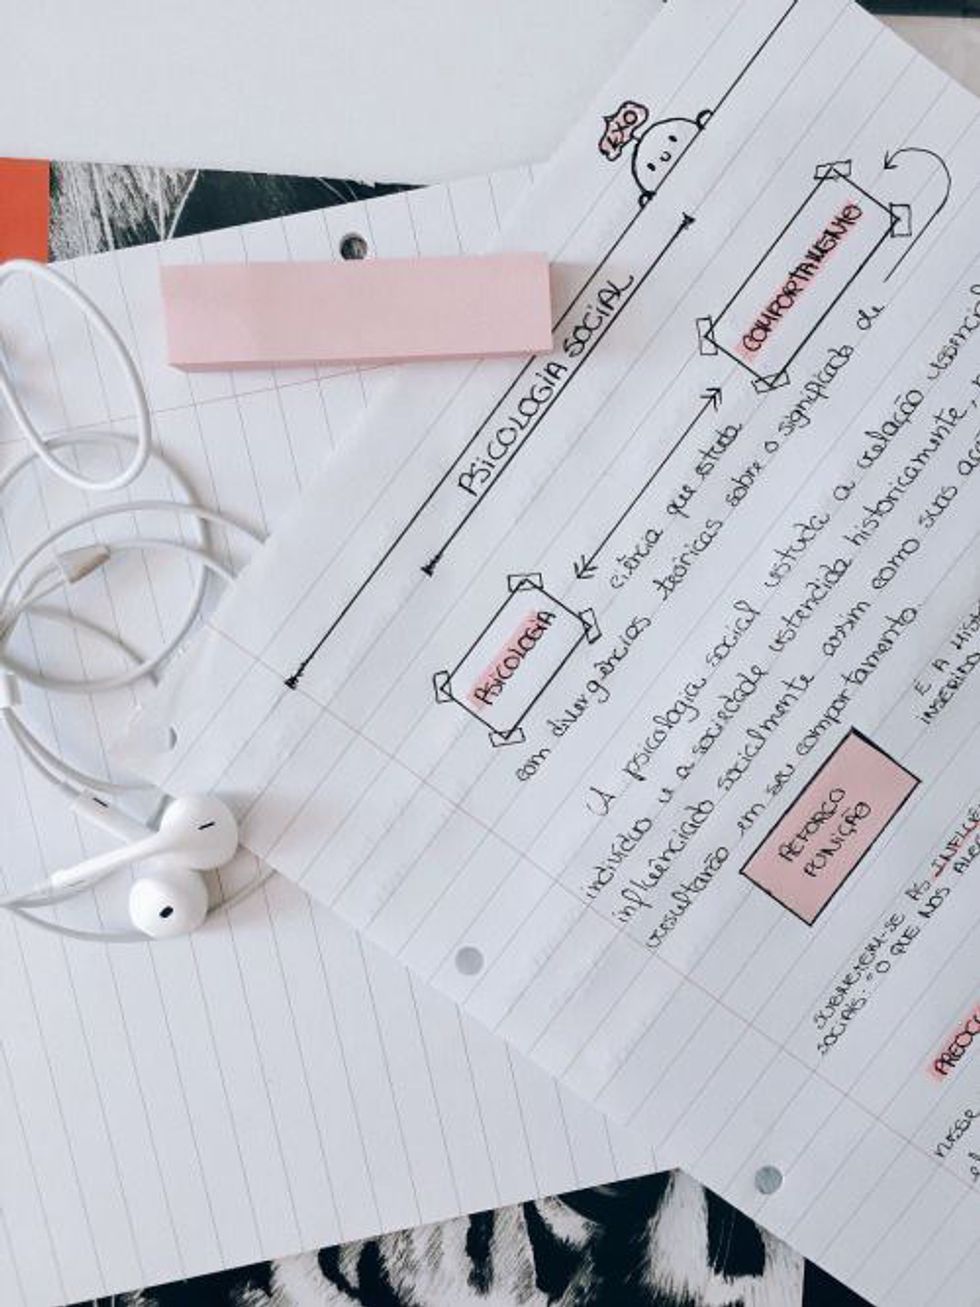 EXO
PSICOLOGIA SOCIAL
COMPORTAMENTO
PSICOLOGIA
ciência que estuda
com divergências teóricas sobre o significado de
A psicologia social estuda a relação essencial
indivíduo e a sociedade estendida historicamente,
influênciado socialmente assim como suas
resultarão em seu comportamento.
REFORÇO
PUNIÇÃO
E A
INSERIDO
SUBMETEM-SE ÀS
SOCIAIS: "O QUE NOS
nesse